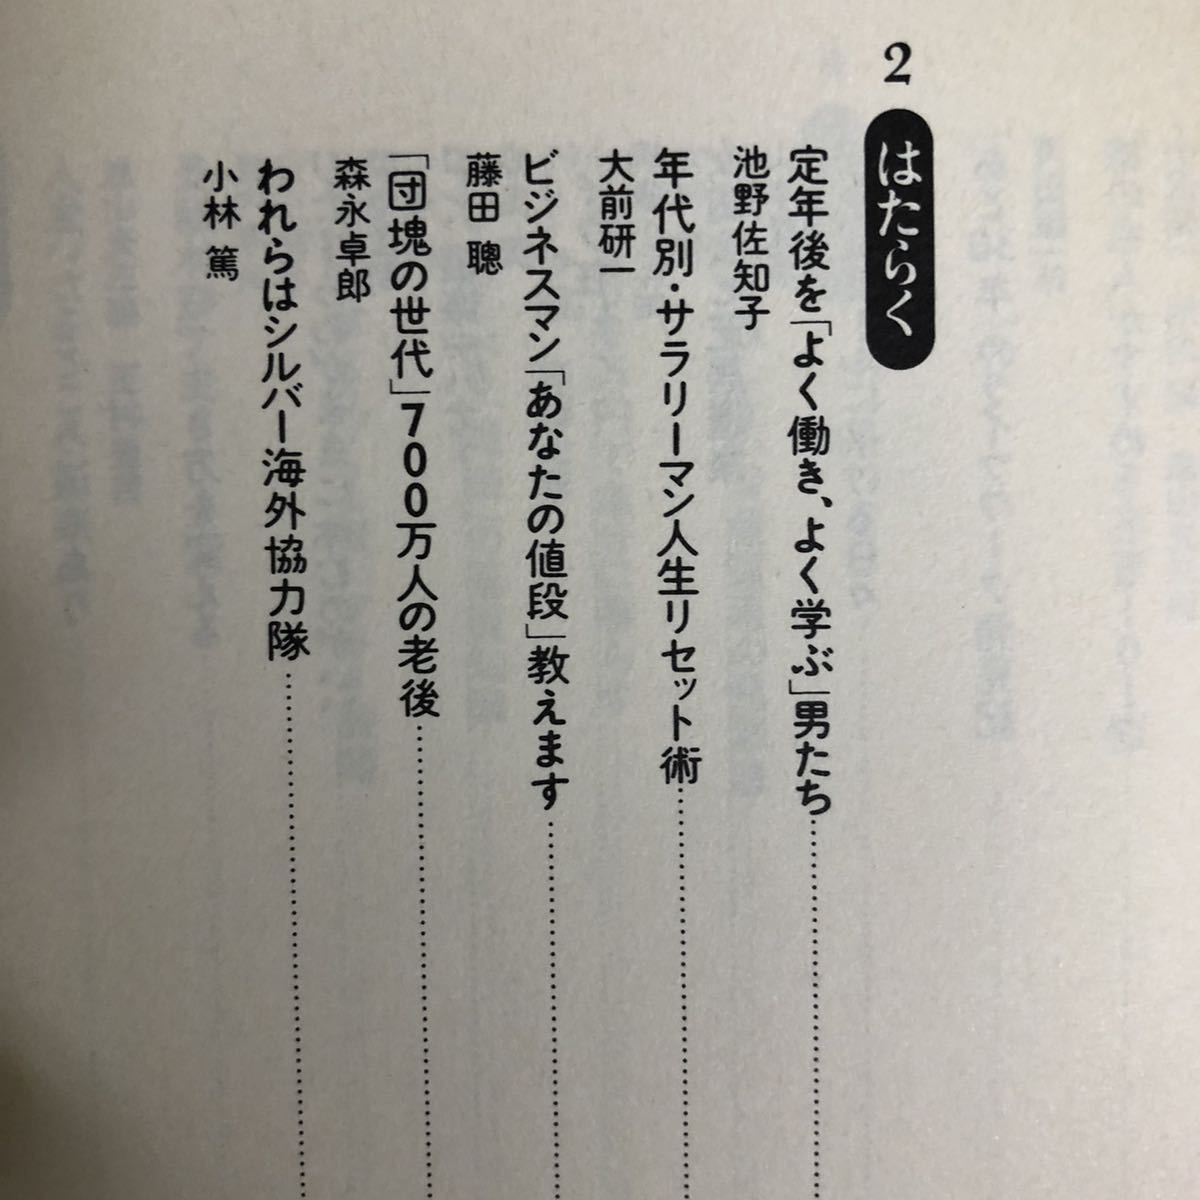 2
はたらく
定年後を「よく働き、よく学ぶ」男たち
池野佐知子
年代別・サラリーマン人生リセット術
大前研一
ビジネスマン「あなたの値段」教えます
藤田 聰
「団塊の世代」700万人の老後
森永卓郎
われらはシルバー海外協力隊
小林 篤